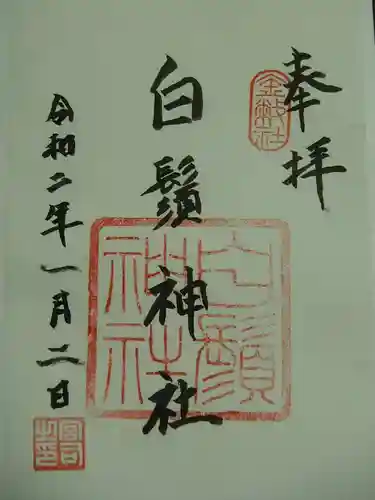 奉拝
金幣社
白鬚神社
白鬚神社
令和二年一月二日
宮司之印